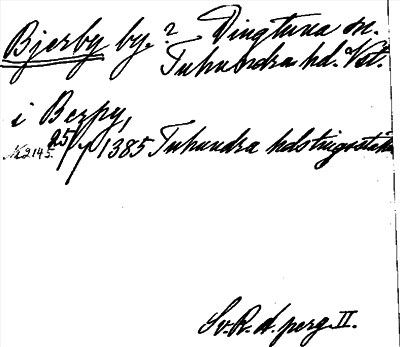 Bjerby by. ? Dingtuna sn.
Tuhundra hd. Vst.
i Berpy,
No 2145. 25/7 1385 Tuhundra hdstingsställe
Sv. R. d. perg. II.